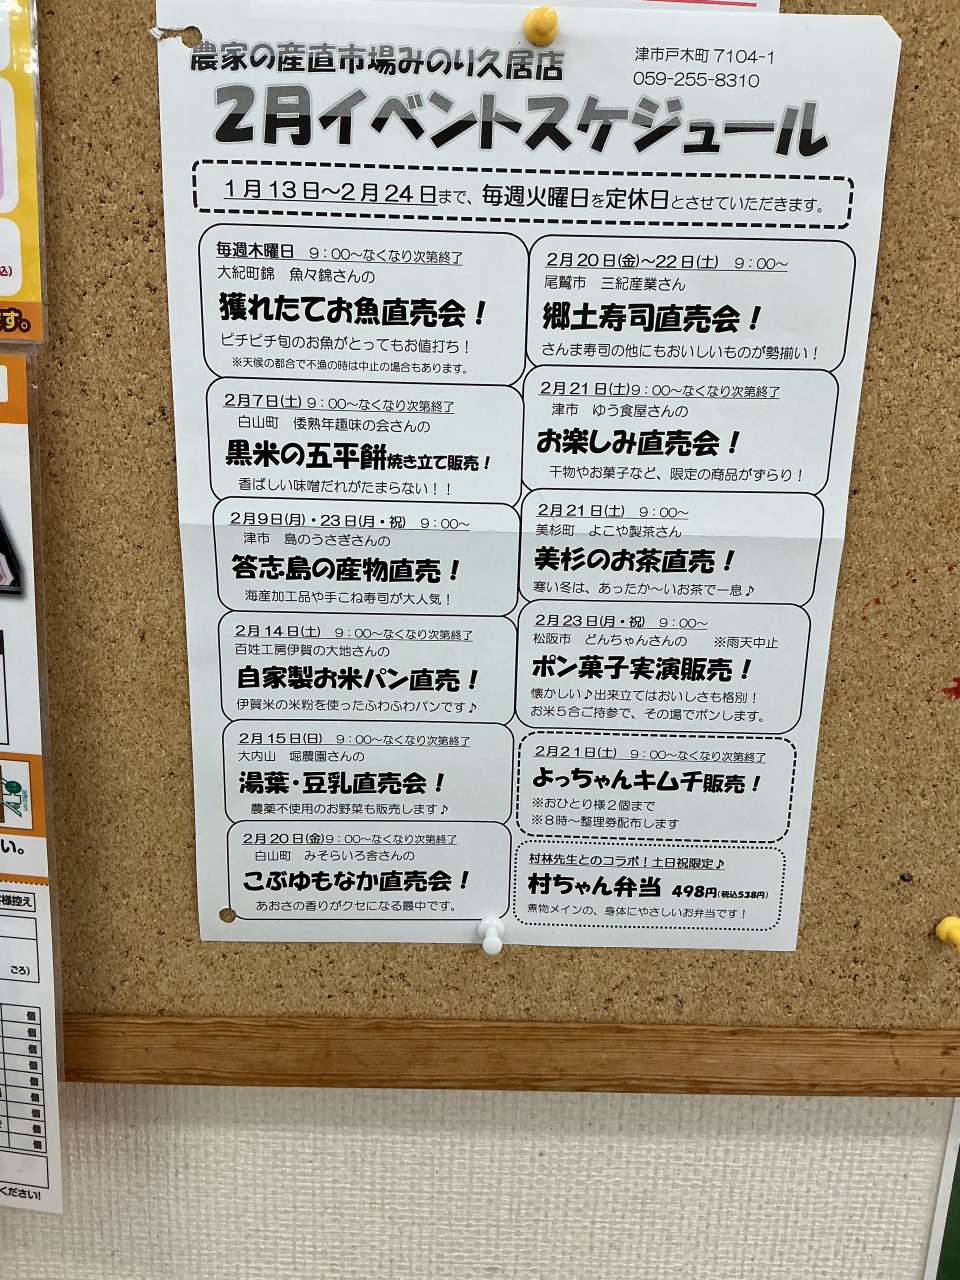 農家の産直市場みのり久居店
津市戸木町 7104-1
059-255-8310
2月イベントスケジュール
1月13日～2月24日まで、毎週火曜日を定休日とさせていただきます。
毎週木曜日 9：00～なくなり次第終了
大紀町錦 魚々錦さんの
獲れたてお魚直売会！
ピチピチ旬のお魚がとってもお値打ち！
※天候の都合で不漁の時は中止の場合もあります。
2月7日(土) 9：00～なくなり次第終了
白山町 倭熟年趣味の会さんの
黒米の五平餅焼き立て販売！
香ばしい味噌だれがたまらない！！
2月9日(月)・23日(月・祝) 9：00～
津市 島のうさぎさんの
答志島の産物直売！
海産加工品や手こね寿司が大人気！
2月14日(土) 9：00～なくなり次第終了
百姓工房伊賀の大地さんの
自家製お米パン直売！
伊賀米の米粉を使ったふわふわパンです♪
2月15日(日) 9：00～なくなり次第終了
大内山 堀農園さんの
湯葉・豆乳直売会！
農薬不使用のお野菜も販売します♪
2月20日(金)9：00～なくなり次第終了
白山町 みそらいろ舎さんの
こぶゆもなか直売会！
あおさの香りがクセになる最中です。
2月20日(金)～22日(土) 9：00～
尾鷲市 三紀産業さん
郷土寿司直売会！
さんま寿司の他にもおいしいものが勢揃い！
2月21日(土)9：00～なくなり次第終了
津市 ゆう食屋さんの
お楽しみ直売会！
干物やお菓子など、限定の商品がずらり！
2月21日(土) 9：00～
美杉町 よこや製茶さん
美杉のお茶直売！
寒い冬は、あったか～いお茶で一息♪
2月23日(月・祝) 9：00～
松阪市 どんちゃんさんの ※雨天中止
ポン菓子実演販売！
懐かしい♪出来立てはおいしさも格別！
お米5合ご持参で、その場でポンします。
2月21日(土) 9：00～なくなり次第終了
よっちゃんキムチ販売！
※おひとり様2個まで
※8時～整理券配布します
村林先生とのコラボ！土日祝限定♪
村ちゃん弁当 498円(税込538円)
煮物メインの、身体にやさしいお弁当です！
す。
い。
様控え
ごろ)
個
個
個
個
個
個
個
個
個
ください!